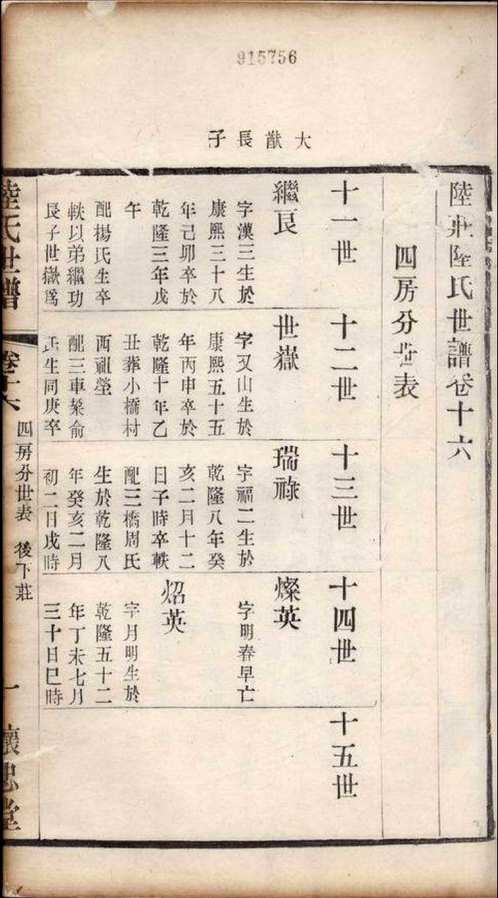 915756
大猷長子
陸莊陸氏世譜卷十六
四房分世表
十一世
十二世
十三世
十四世
十五世
繼艮
字漢三生於
康熙三十八
年己卯卒於
乾隆三年戊
午
配楊氏生卒
軼以弟繼功
艮子世嶽爲
世嶽
字又山生於
康熙五十五
年丙申卒於
乾隆十年乙
丑葬小橋村
西祖塋
配三車渠俞
氏生同庚卒
瑞祿
字福二生於
乾隆八年癸
亥二月十二
日子時卒軼
配三橋周氏
生於乾隆八
年癸亥二月
初二日戌時
燦英
字明春早亡
炤英
字月明生於
乾隆五十二
年丁未七月
三十日巳時
陸氏世譜
卷十六
四房分世表
後下莊
一
懷忠堂